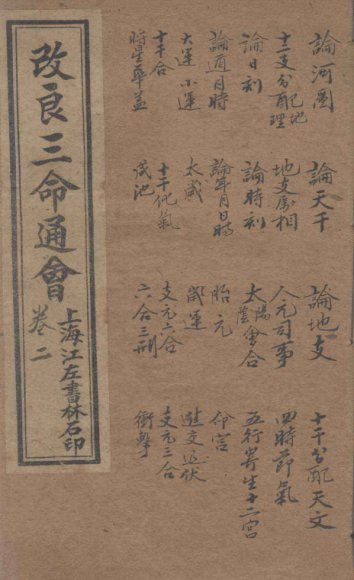 論河圖 論天干 論地支 十干分配天文
十二支分配地理 地支屬相 人元司事 四時節氣
論日刻 論時刻 太陽太陰會合 五行寄生十二宮
論遁月時 論年月日時 胎元 命宮
大運小運 太歲 歲運 進交退伏
十干合 十干化氣 支元六合 支元三合
將星華蓋 咸池 六合三刑 衝擊
改良三命通會
卷二
上海江左書林石印